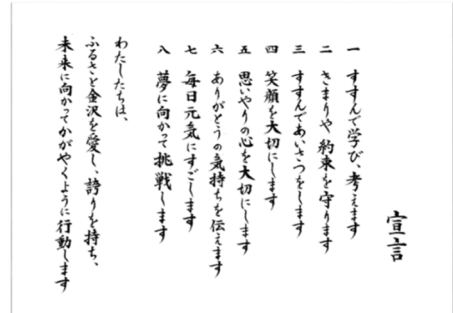 宣言
一 すすんで学び、考えます
二 きまりや約束を守ります
三 すすんであいさつをします
四 笑顔を大切にします
五 思いやりの心を大切にします
六 ありがとうの気持ちを伝えます
七 毎日元気にすごします
八 夢に向かって挑戦します
わたしたちは、
ふるさと金沢を愛し、誇りを持ち、
未来に向かってかがやくように行動します